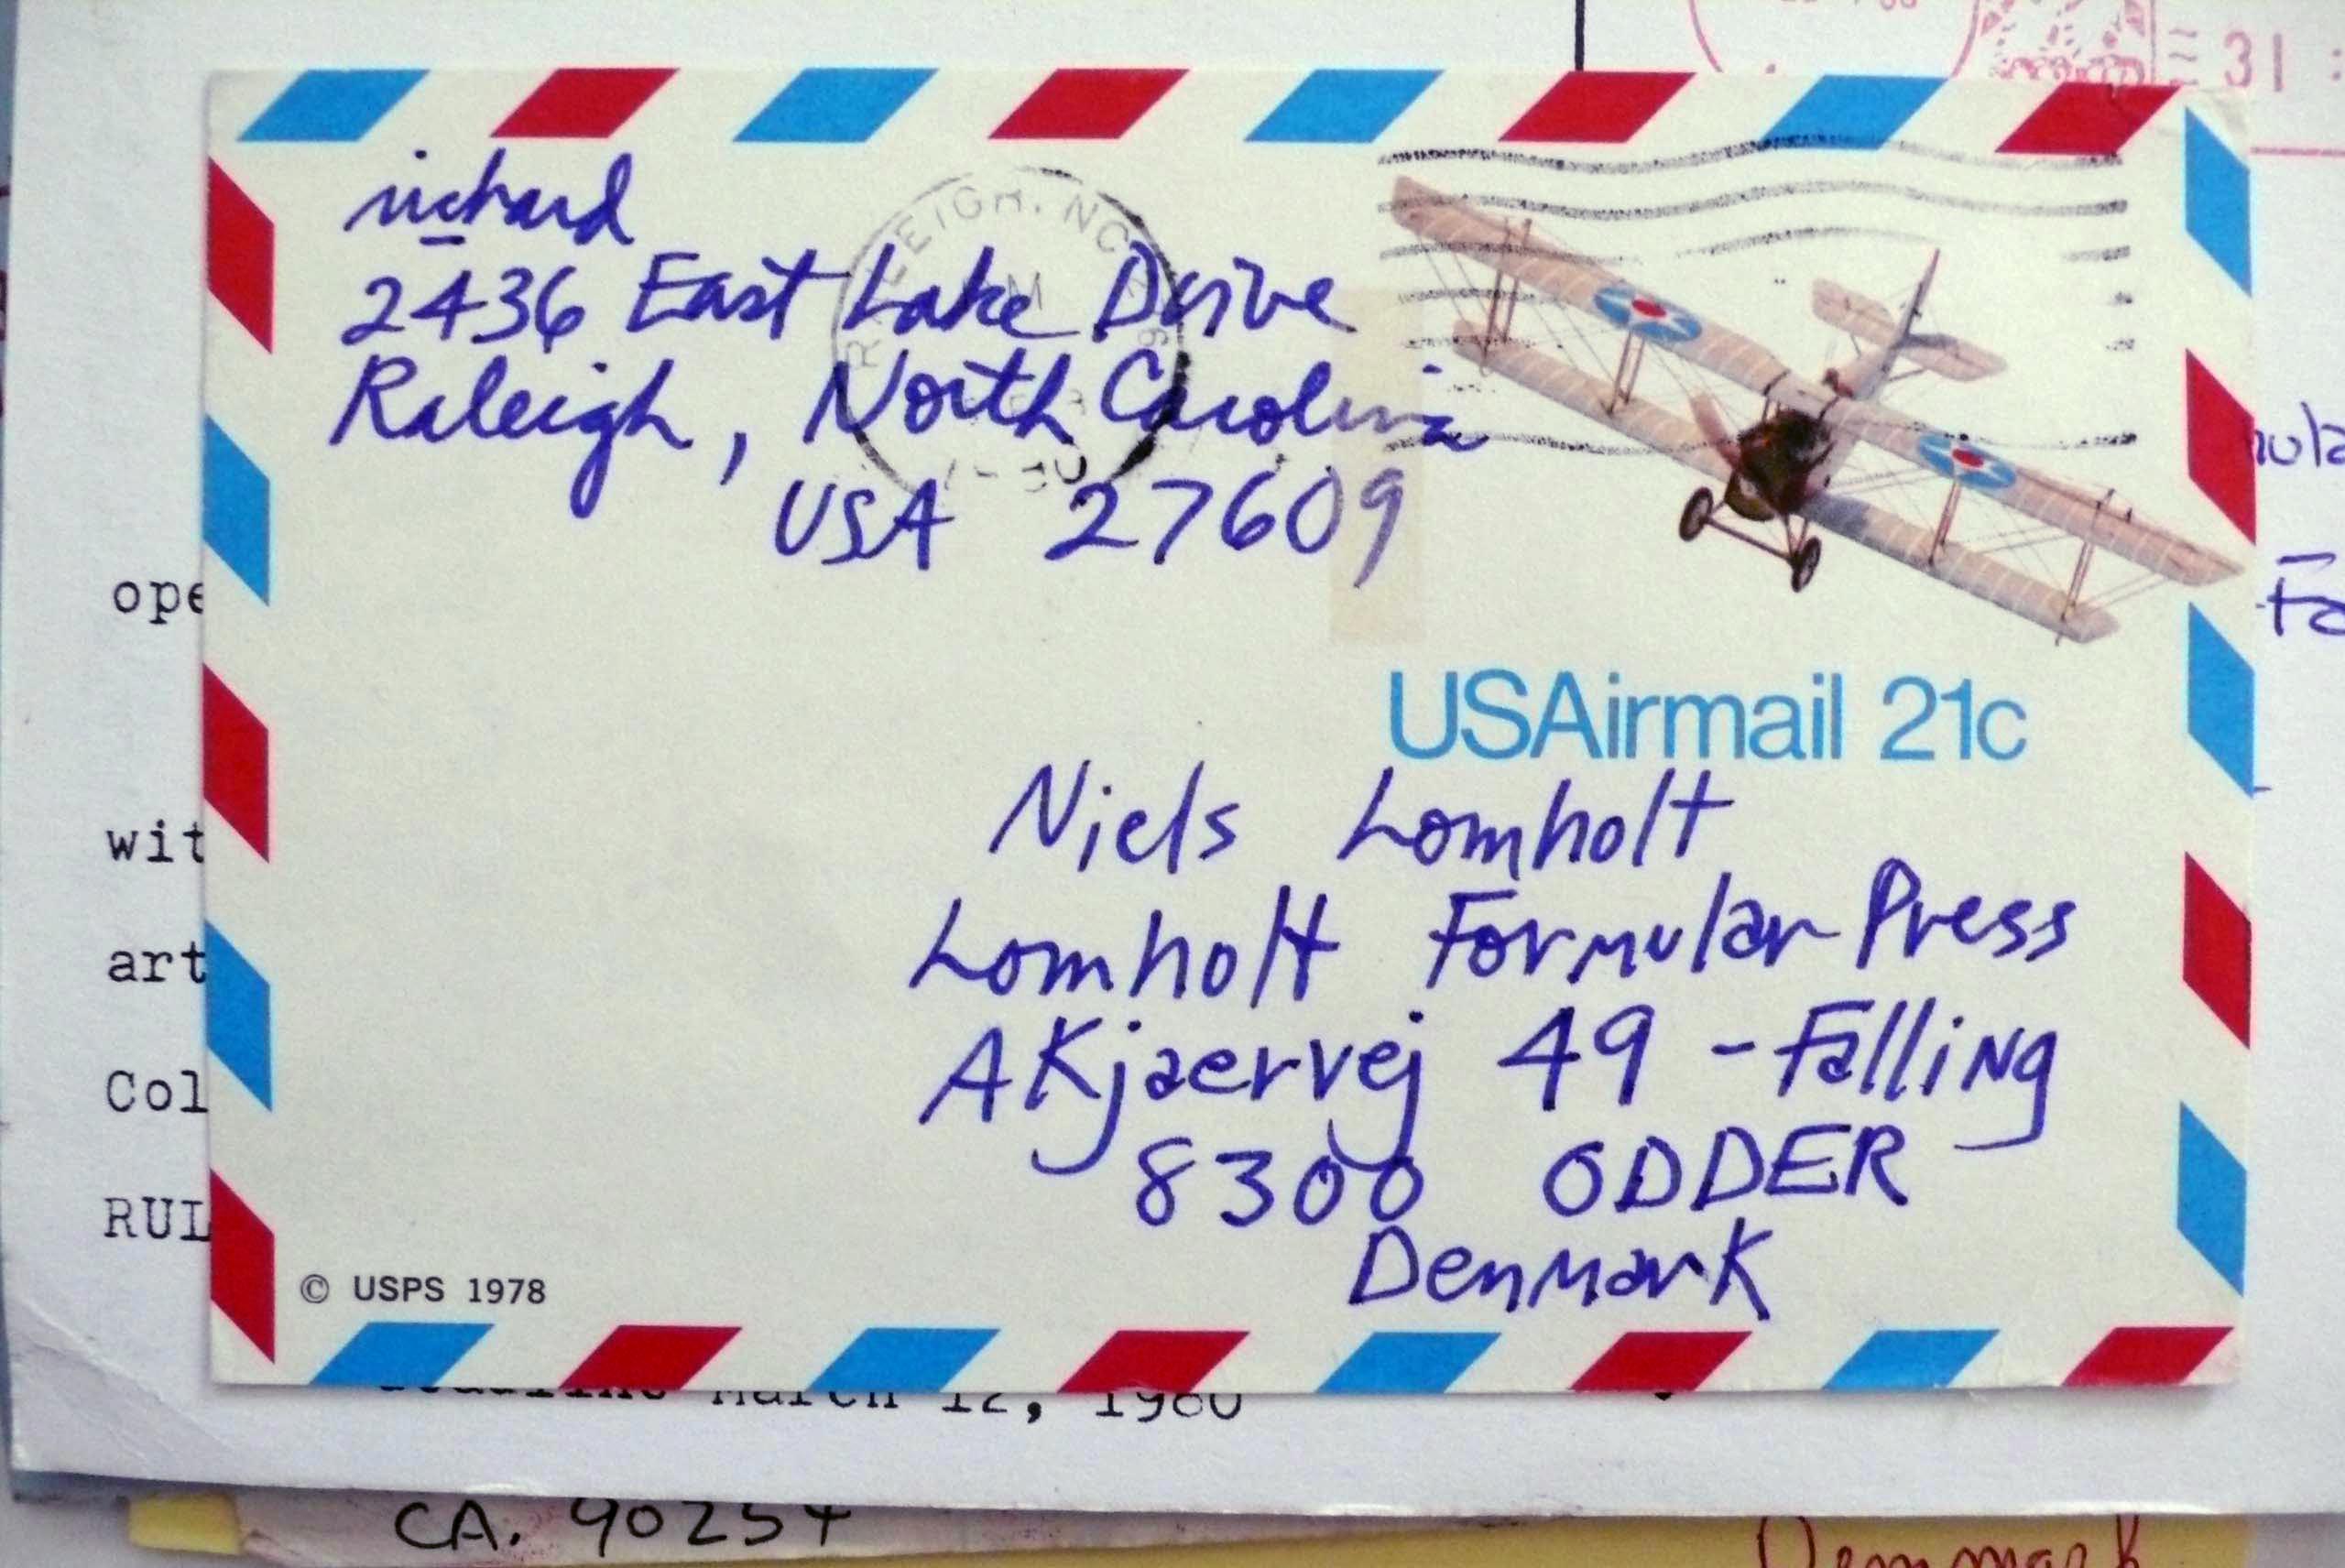 31
richard
2436 East Lake Drive
Raleigh, North Carolina
USA 27609
RALEIGH, NC
USAirmail 21c
Niels Lomholt
Lomholt Formular Press
AKjaervej 49 - Falling
8300 ODDER
Denmark
© USPS 1978
ope
wit
art
Col
RUL
deadline March 12, 1980
CA. 90254
Denmark